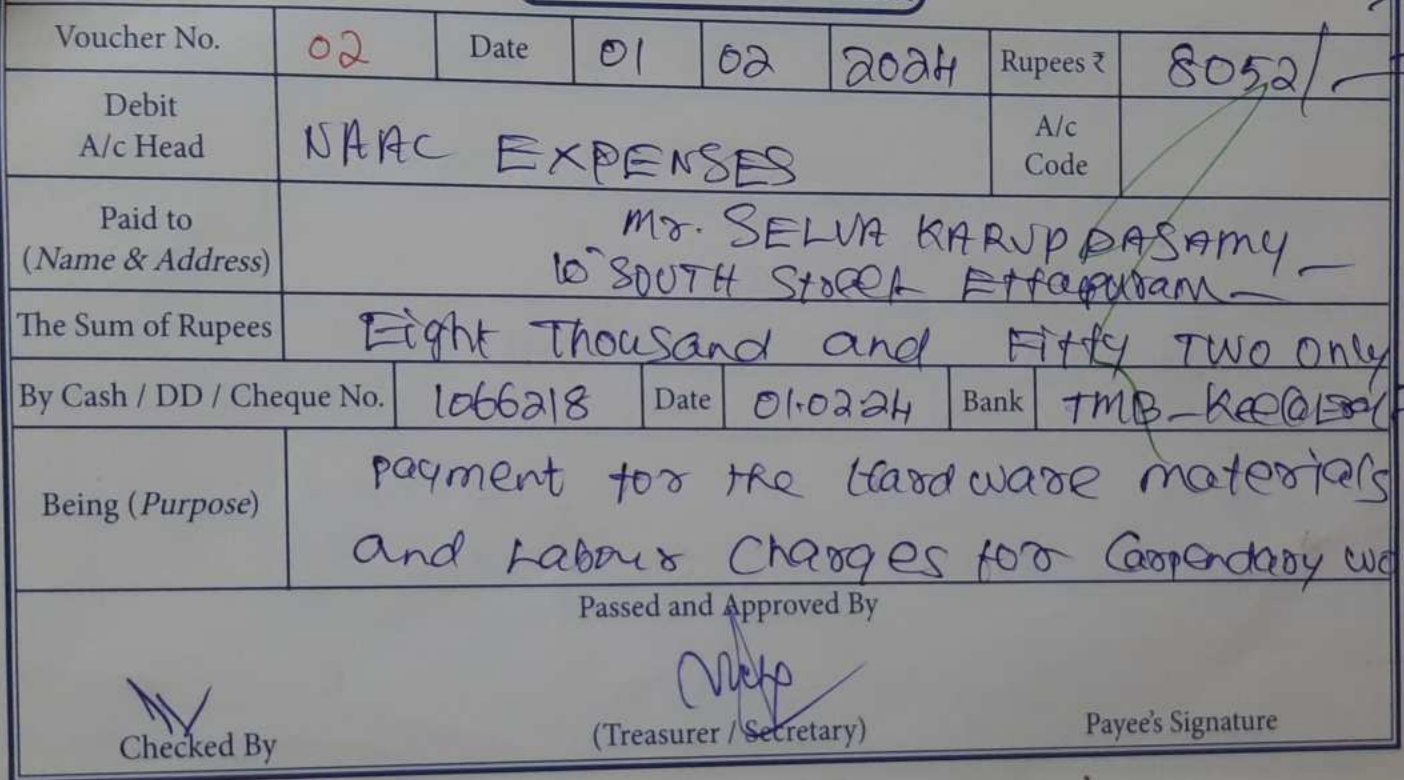 Voucher No. 02 Date 01 02 2024 Rupees ₹ 8052/-
Debit A/c Head NAAC EXPENSES A/c Code
Paid to Mr. SELVA KARUPPASAMY
(Name & Address) 10 SOUTH Street Ettapuram
The Sum of Rupees Eight Thousand and Fifty TWO Only
By Cash / DD / Cheque No. 1066218 Date 01.02.24 Bank TMB-
payment for the Hardware materials
Being (Purpose)
and Labour Charges for Carpendary wo
Passed and Approved By
Checked By (Treasurer / Secretary) Payee's Signature